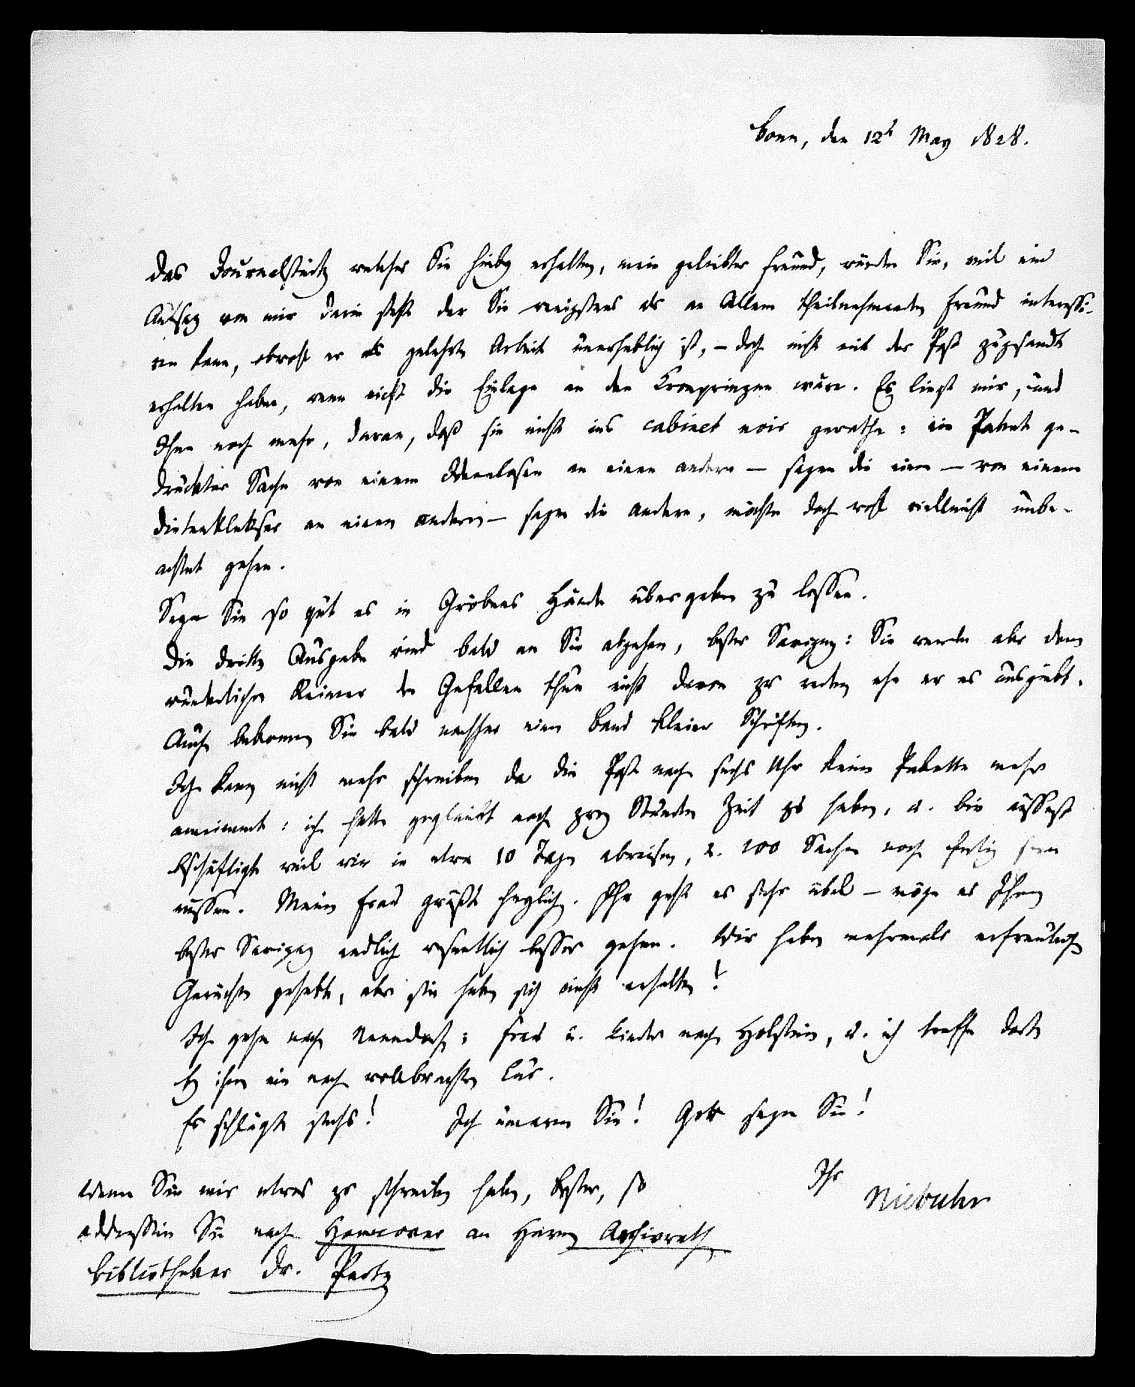 Bonn, den 12t May 1828.
Das Journalstück welches Sie hiebey erhalten, mein geliebter Freund, würden Sie, weil ein
Aufsaz von mir darin steht der Sie wenigstens als an Allem theilnehmenden Freund interessi-
ren kann, obwohl er als gelehrte Arbeit unerheblich ist, – doch nicht mit der Post zugesandt
erhalten haben, wenn nicht die Einlage an den Kronprinzen wäre. Es liegt mir, und
Ihnen noch mehr, daran, daß sie nicht ins cabinet noir gerathe: ein Paket ge-
druckter Sachen von einem Ideenlosen an einen andern – sagen die einen – von einem
Dintenkleckser an einen andern – sagen die andern, möchte doch wohl vielleicht unbe-
achtet gehen.
Seyn Sie so gut es in Gröbens Hände übergeben zu lassen.
Die dritte Ausgabe wird bald an Sie abgehen, bester Savigny: Sie werden aber dem
wunderlichen Reimer den Gefallen thun nicht davon zu reden ehe er es ausgiebt.
Auch bekommen Sie bald nachher einen Band kleiner Schriften.
Ich kann nicht mehr schreiben da die Post nach sechs Uhr keine Pakette mehr
annimmt: ich hatte geglaubt noch zwey Stunden Zeit zu haben, u. bin äusserst
beschäftigt weil wir in etwa 10 Tagen abreisen, u. 100 Sachen noch fertig seyn
müssen. Meine Frau grüßt herzlich. Ihr geht es sehr übel – möge es Ihnen
bester Savigny endlich wesentlich besser gehen. Wir haben mehrmals erfreuliche
Gerüchte gehabt, aber sie haben sich nicht erhalten!
Ich gehe nach Nenndorf; Frau u. Kinder nach Holstein, u. ich treffe dort
bey ihnen ein nach vollbrachter Cur.
Es schlägt sechs! Ich umarme Sie! Gott segne Sie!
Ihr
Niebuhr
Wenn Sie mir etwas zu schreiben haben, bester, so
addressiren Sie nach Hannover an Herrn Archivrath
Bibliothekar Dr. Pertz